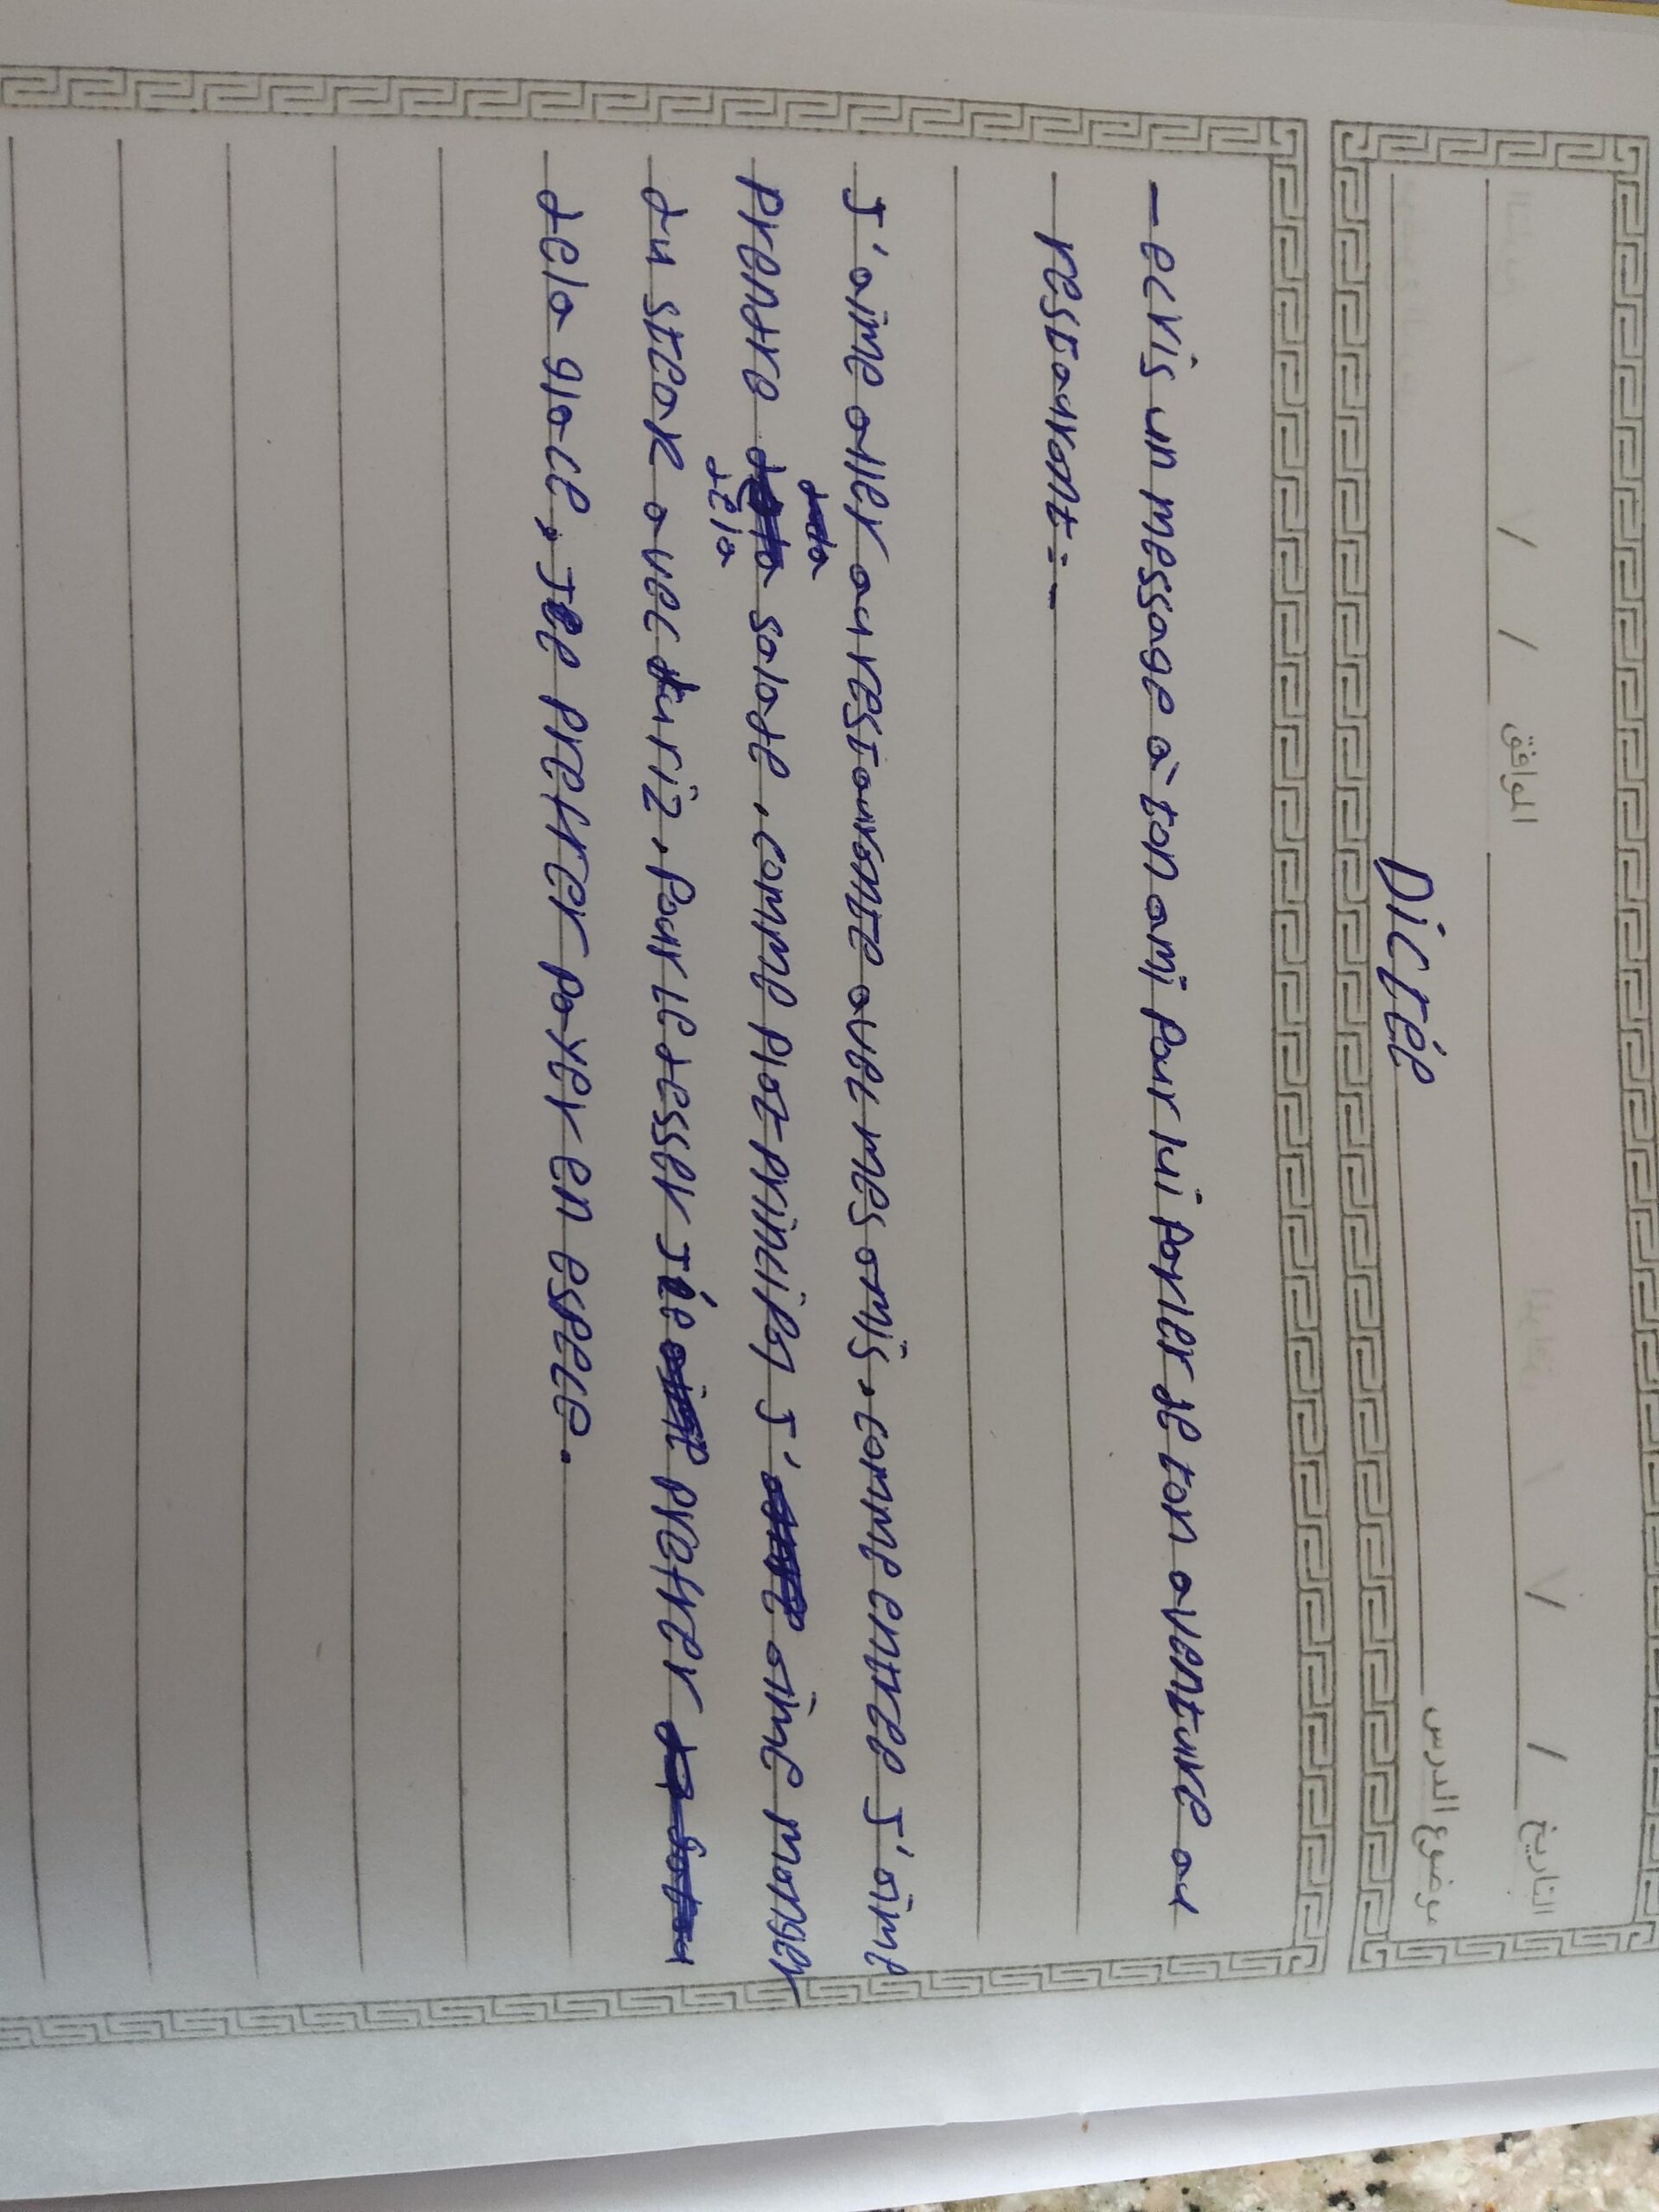 التاريخ / / الموافق / /
موضوع الدرس
Dictée
- ecris un message à ton ami pour lui parler de ton aventure au
restaurant :-
J'aime aller au restaurante avec mes amis. comme entree J'aime
prendre dela salade. comme plat principal J'aime manger
du steak avec du riz. Pour le desser Je prefrer
dela glace. Je prefrer payer en espece.